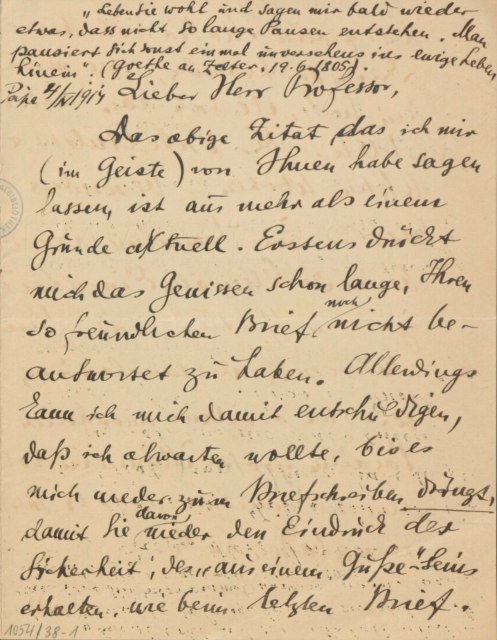 „Leben Sie wohl und sagen mir bald wieder
etwas, dass nicht so lange Pausen entstehen. Man
pausiert sich sonst einmal unversehens ins ewige Leben
hinein". (Goethe an Zelter, 19.6.1805).
1914 Lieber Herr Professor,
Das obige Zitat, das ich mir
(im Geiste) von Ihnen habe sagen
lassen, ist aus mehr als einem
Grunde aktuell. Erstens drückt
mich das Gewissen schon lange, Ihren
so freundlichen Brief noch nicht be-
antwortet zu haben. Allerdings
kann ich mich damit entschuldigen,
daß ich abwarten wollte, bis es
mich wieder zum Briefschreiben drängt,
damit Sie dann wieder den Eindruck der
Sicherheit, des „aus einem Guße"-Seins
erhalten, wie beim letzten Brief.
1054/38-1